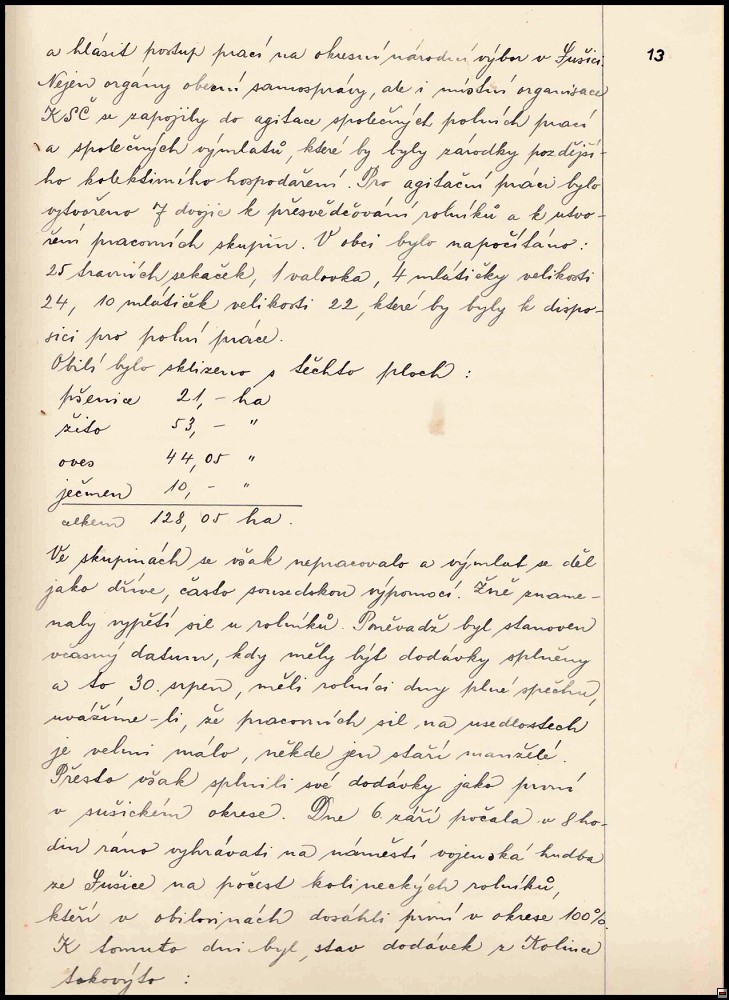 13
a hlásit postup prací na okresní národní výbor v Sušici.
Nejen orgány obecní samosprávy, ale i místní organisace
KSČ se zapojily do agitace společných polních prací
a společných výmlatů, které by byly zárodky pozdější-
ho kolektivního hospodaření. Pro agitační práci bylo
vytvořeno 7 dvojic k přesvědčování rolníků a k utvo-
ření pracovních skupin. V obci bylo napočítáno:
25 travních sekaček, 1 valovka, 4 mlátičky velikosti
24, 10 mlátiček velikosti 22, které by byly k dispo-
sici pro polní práce.
Obilí bylo sklizeno s těchto ploch:
pšenice 21,- ha
žito 53,- "
oves 44,05 "
ječmen 10,- "
celkem 128,05 ha.
Ve skupinách se však nepracovalo a výmlat se děl
jako dříve, často sousedskou výpomocí. Žně zname-
naly vypětí sil u rolníků. Poněvadž byl stanoven
včasný datum, kdy měly být dodávky splněny
a to 30. srpen, měli rolníci dny plné spěchu,
uvážíme-li, že pracovních sil na usedlostech
je velmi málo, někde jen staří manželé.
Přesto však splnili své dodávky jako první
v sušickém okrese. Dne 6. září počala v 8 ho-
din ráno vyhrávati na náměstí vojenská hudba
ze Sušice na počest kolineckých rolníků,
kteří v obilovinách dosáhli první v okrese 100%.
K tomuto dni byl stav dodávek z Kolince
takovýto: